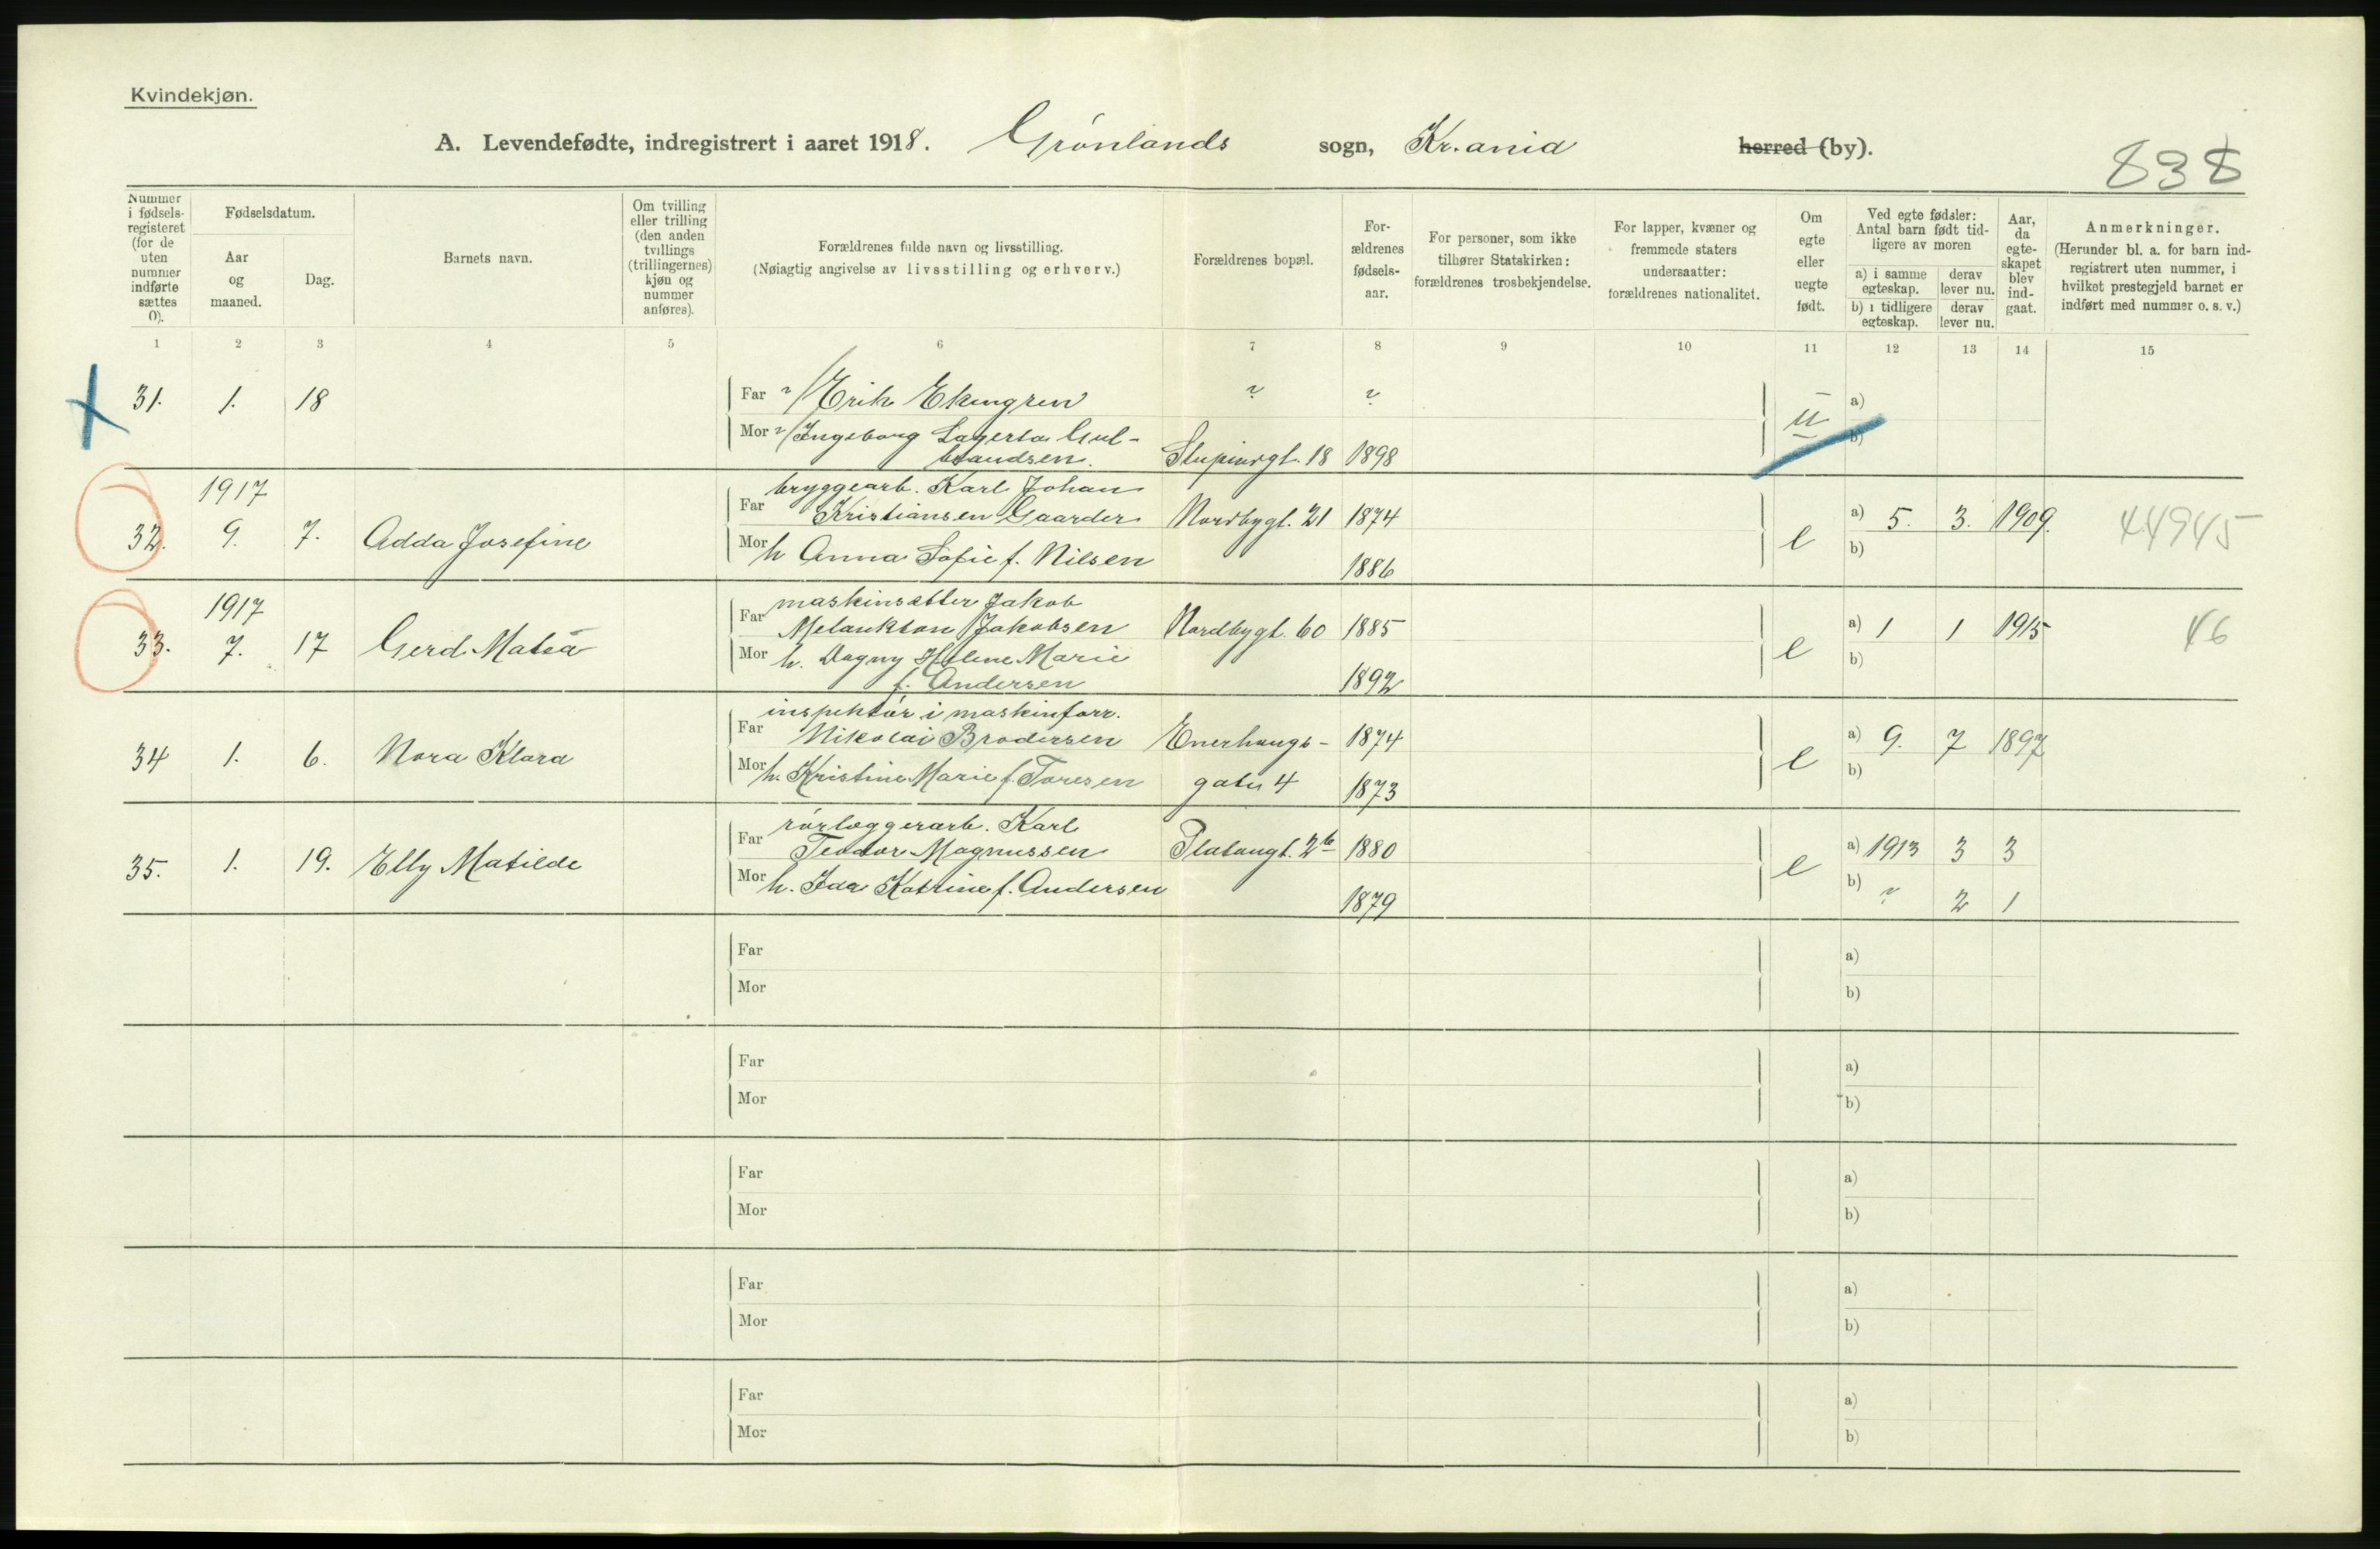 Kvindekjøn.
A. Levendefødte, indregistrert i aaret 1918. Grønlands sogn, Kr.ania herred (by).
838
Nummer i fødsels-registeret (for de uten nummer indførte sættes 0).
Fødselsdatum.
Aar og maaned.
Dag.
Barnets navn.
Om tvilling eller trilling (den anden tvillings (trillingernes) kjøn og nummer anføres).
Forældrenes fulde navn og livsstilling.
(Nøiagtig angivelse av livsstilling og erhverv.)
Forældrenes bopæl.
For-ældrenes fødsels-aar.
For personer, som ikke tilhører Statskirken: forældrenes trosbekjendelse.
For lapper, kvæner og fremmede staters undersaatter: forældrenes nationalitet.
Om egte eller uegte født.
Ved egte fødsler: Antal barn født tid-ligere av moren
a) i samme egteskap.
derav lever nu.
b) i tidligere egteskap.
derav lever nu.
Aar, da egte-skapet blev ind-gaat.
Anmerkninger.
(Herunder bl. a. for barn ind-registrert uten nummer, i hvilket prestegjeld barnet er indført med nummer o. s. v.)
1 2 3 4 5 6 7 8 9 10 11 12 13 14 15
31. 1. 18 Far ?/Erik Ekengren ? ? u a)
Mor ?/Ingeborg Lagerta Gul-
brandsen. Stupinsgt. 18 1898 b)
1917 bryggearb. Karl Johan
32. 9. 7. Adda Josefine Far Kristiansen Gaarder Nordbygt. 21 1874 e a) 5. 3. 1909. 44945
Mor h Anna Sofie f. Nilsen 1886 b)
1917 maskinsetter Jakob
33. 7. 17 Gerd Matea Far Melankton Jakobsen Nordbygt. 60 1885 e a) 1 1 1915 46
Mor h. Dagny Helene Marie
f. Andersen 1892 b)
inspektør i maskinforr.
34 1. 6. Nora Klara Far Nikolai Brodersen Enerhaugs- 1874 e a) 9. 7 1897
Mor h. Kristine Marie f. Toresen gaten 4 1873 b)
rørlæggerarb. Karl
35. 1. 19. Elly Matilde Far Teodor Magnussen Platougt. 2b 1880 e a) 1913 3 3
Mor h. Ida Katrine f. Andersen 1879 b) ? 2 1
Far a)
Mor b)
Far a)
Mor b)
Far a)
Mor b)
Far a)
Mor b)
Far a)
Mor b)